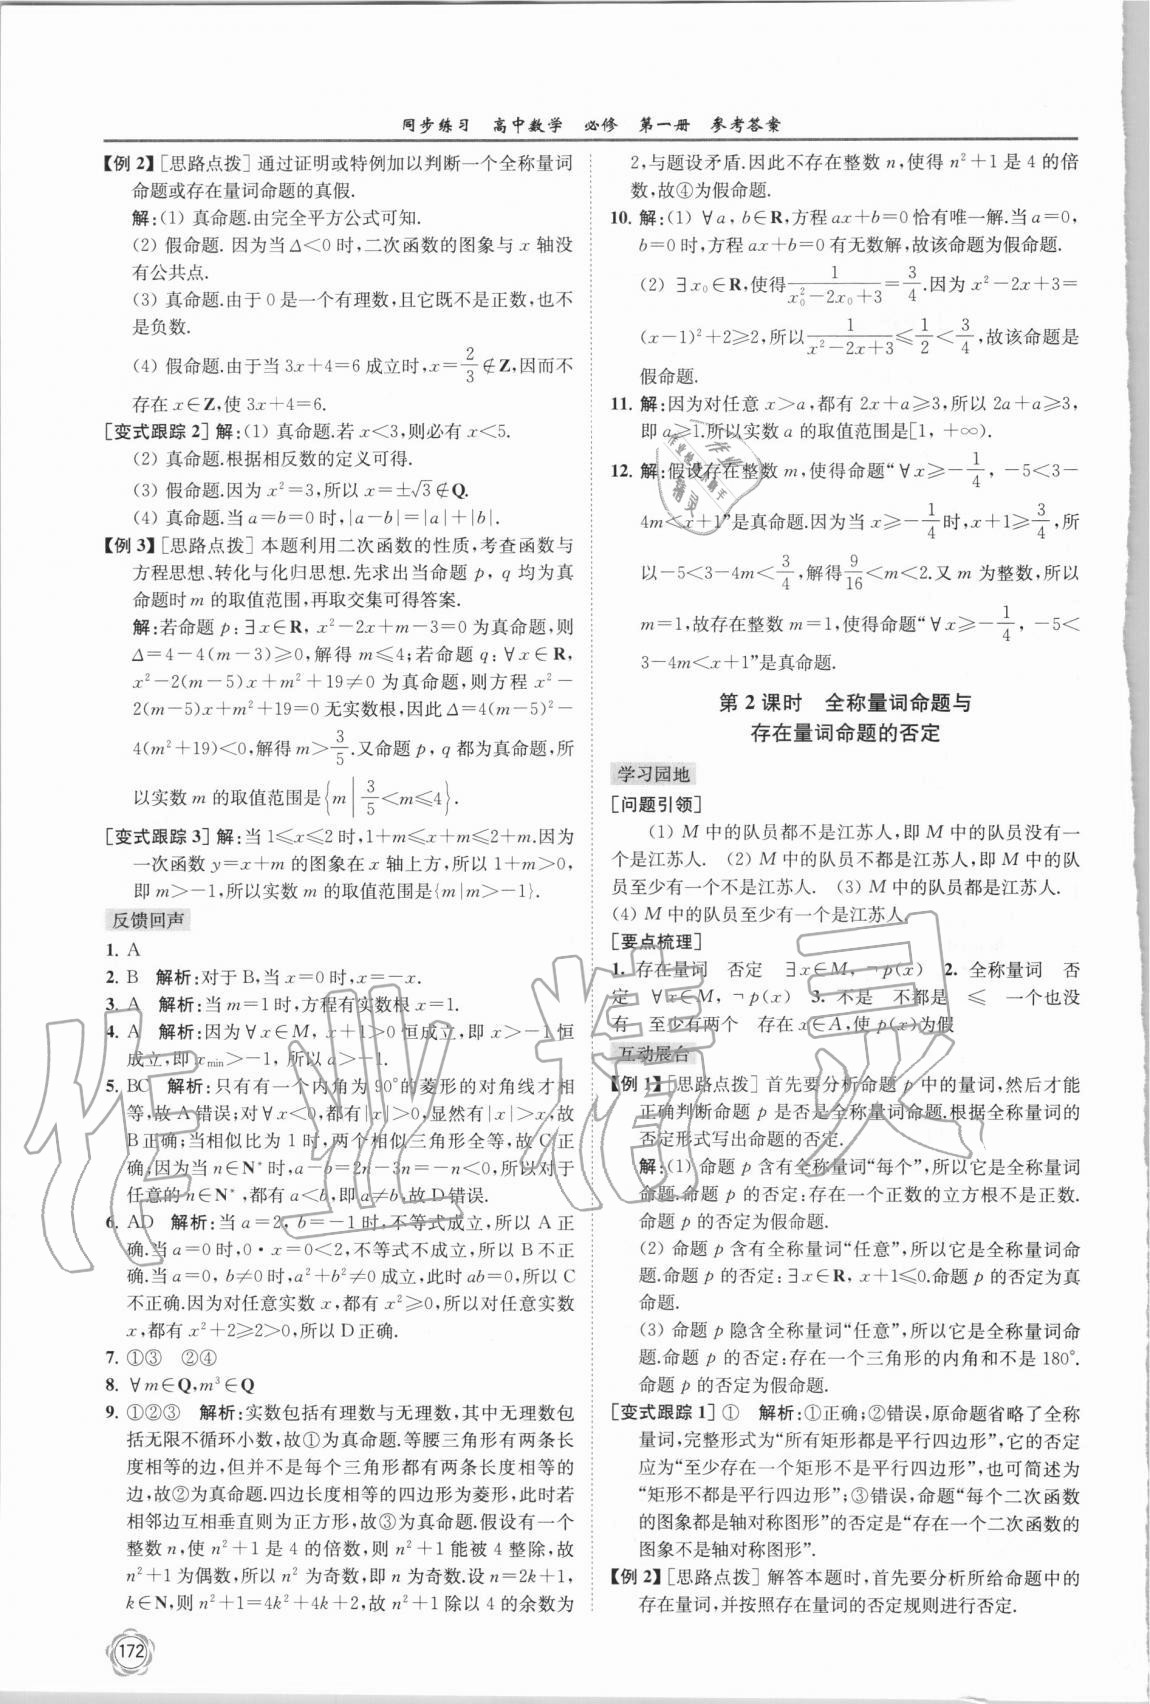 同步练习 高中数学 必修 第一册 参考答案
【例2】[思路点拨] 通过证明或特例加以判断一个全称量词
命题或存在量词命题的真假.
解:(1) 真命题.由完全平方公式可知.
(2) 假命题. 因为当Δ<0时,二次函数的图象与 x 轴没
有公共点.
(3) 真命题.由于0是一个有理数,且它既不是正数,也不
是负数.
(4) 假命题.由于当 3x+4=6 成立时,x=2/3∉Z,因而不
存在 x∈Z,使 3x+4=6.
[变式跟踪2] 解:(1) 真命题.若 x<3,则必有 x<5.
(2) 真命题.根据相反数的定义可得.
(3) 假命题.因为 x²=3,所以 x=±√3∉Q.
(4) 真命题.当 a=b=0时,|a-b|=|a|+|b|.
【例3】[思路点拨] 本题利用二次函数的性质,考查函数与
方程思想、转化与化归思想.先求出当命题 p, q 均为真
命题时 m 的取值范围,再取交集可得答案.
解:若命题 p:∃x∈R, x²-2x+m-3=0 为真命题,则
Δ=4-4(m-3)≥0,解得 m≤4;若命题 q:∀x∈R,
x²-2(m-5)x+m²+19≠0 为真命题,则方程 x²-
2(m-5)x+m²+19=0 无实数根,因此Δ=4(m-5)²-
4(m²+19)<0,解得 m>3/5.又命题 p, q 都为真命题,所
以实数 m 的取值范围是{m|3/5<m≤4}.
[变式跟踪3] 解:当 1≤x≤2时,1+m≤x+m≤2+m.因为
一次函数 y=x+m 的图象在 x 轴上方,所以 1+m>0,
即 m>-1,所以实数 m 的取值范围是{m|m>-1}.
反馈回声
1. A
2. B 解析:对于B,当 x=0时,x=-x.
3. A 解析:当 m=1时,方程有实数根 x=1.
4. A 解析:因为∀x∈M, x+1>0 恒成立,即 x>-1 恒
成立,即 xmin>-1, 所以 a>-1.
5. BC 解析:只有有一个内角为90°的菱形的对角线才相
等,故A错误;对∀x<0,都有|x|>0,显然有|x|>x,故
B正确;当相似比为1时,两个相似三角形全等,故C正
确;因为当 n∈N*时,a-b=2n-3n=-n<0,所以对于
任意的 n∈N*,都有 a<b,即 a≠b,故D错误.
6. AD 解析:当 a=2, b=-1时,不等式成立,所以A正
确.当 a=0时,0·x=0<2,不等式不成立,所以B不正
确.当 a=0, b≠0时,a²+b²≠0成立,此时 ab=0,所以C
不正确.因为对任意实数 x,都有 x²≥0,所以对任意实数
x,都有 x²+2≥2>0,所以D正确.
7. ①③ ②④
8. ∀m∈Q,m³∈Q
9. ①②③ 解析:实数包括有理数与无理数,其中无理数包
括无限不循环小数,故①为真命题.等腰三角形有两条长
度相等的边,但并不是每个三角形都有两条长度相等的
边,故②为真命题.四边长度相等的四边形为菱形,此时若
相邻边互相垂直则为正方形,故③为真命题.假设有一个
整数 n,使 n²+1 是4的倍数,则 n²+1 能被4整除,故
n²+1 为偶数,所以 n² 为奇数,即 n 为奇数.设 n=2k+1,
k∈N,则 n²+1=4k²+4k+2,故 n²+1 除以4的余数为
2,与题设矛盾.因此不存在整数 n,使得 n²+1 是4的倍
数,故④为假命题.
10. 解:(1) ∀a, b∈R,方程 ax+b=0恰有唯一解.当 a=0,
b=0时,方程 ax+b=0有无数解,故该命题为假命题.
(2) ∃x₀∈R,使得1/(x₀²-2x₀+3)=3/4.因为 x²-2x+3=
(x-1)²+2≥2,所以1/(x²-2x+3)≤1/2<3/4,故该命题是
假命题.
11. 解:因为对任意 x>a,都有 2x+a≥3,所以 2a+a≥3,
即 a≥1.所以实数 a 的取值范围是[1, +∞).
12. 解:假设存在整数 m,使得命题“∀x≥-1/4, -5<3-
4m<x+1”是真命题.因为当 x≥-1/4时,x+1≥3/4,所
以-5<3-4m<3/4,解得9/16<m<2.又 m 为整数,所以
m=1,故存在整数 m=1,使得命题“∀x≥-1/4, -5<
3-4m<x+1”是真命题.
第2课时 全称量词命题与
存在量词命题的否定
学习园地
[问题引领]
(1) M 中的队员都不是江苏人,即 M 中的队员没有一
个是江苏人. (2) M 中的队员不都是江苏人,即 M 中的队
员至少有一个不是江苏人. (3) M 中的队员都是江苏人.
(4) M 中的队员至少有一个是江苏人.
[要点梳理]
1. 存在量词 否定 ∃x∈M,¬p(x) 2. 全称量词 否
定 ∀x∈M,¬p(x) 3. 不是 不都是 ≤ 一个也没
有 至少有两个 存在x∈A,使 p(x)为假
互动展台
【例1】[思路点拨] 首先要分析命题 p 中的量词,然后才能
正确判断命题 p 是否是全称量词命题.根据全称量词的
否定形式写出命题的否定.
解:(1) 命题 p 含有全称量词“每个”,所以它是全称量词
命题.命题 p 的否定:存在一个正数的立方根不是正数.
命题 p 的否定为假命题.
(2) 命题 p 含有全称量词“任意”,所以它是全称量词命
题.命题 p 的否定:∃x∈R, x+1≤0.命题 p 的否定为真
命题.
(3) 命题 p 隐含全称量词“任意”,所以它是全称量词命
题.命题 p 的否定:存在一个三角形的内角和不是180°.
命题 p 的否定为假命题.
[变式跟踪1] ① 解析:①正确;②错误,原命题省略了全称
量词,完整形式为“所有矩形都是平行四边形”,它的否定
应为“至少存在一个矩形不是平行四边形”,也可简述为
“矩形不都是平行四边形”;③错误,命题“每个二次函数
的图象都是轴对称图形”的否定是“存在一个二次函数的
图象不是轴对称图形”.
【例2】[思路点拨] 解答本题时,首先要分析所给命题中的
存在量词,并按照存在量词的否定规则进行否定.
172
作业精灵